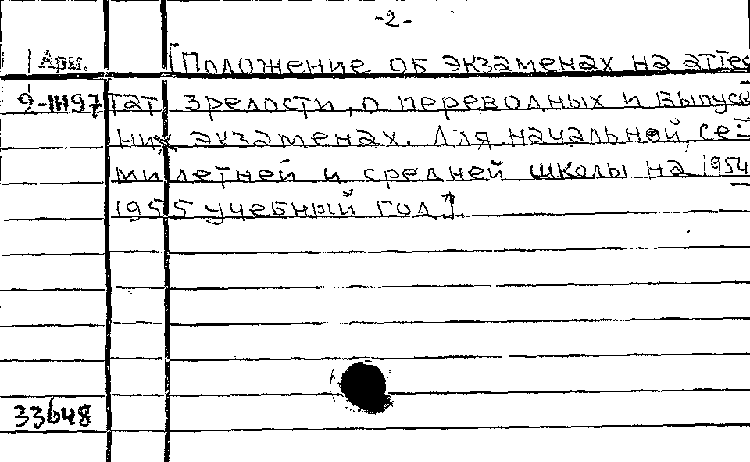 -2-
Арм. [Положение об экзаменах на аттес
9-III97 тат зрелости, о переводных и выпуск
ных экзаменах. Для начальной, се-
милетней и средней школы на 1954
1955 учебный год].
33648